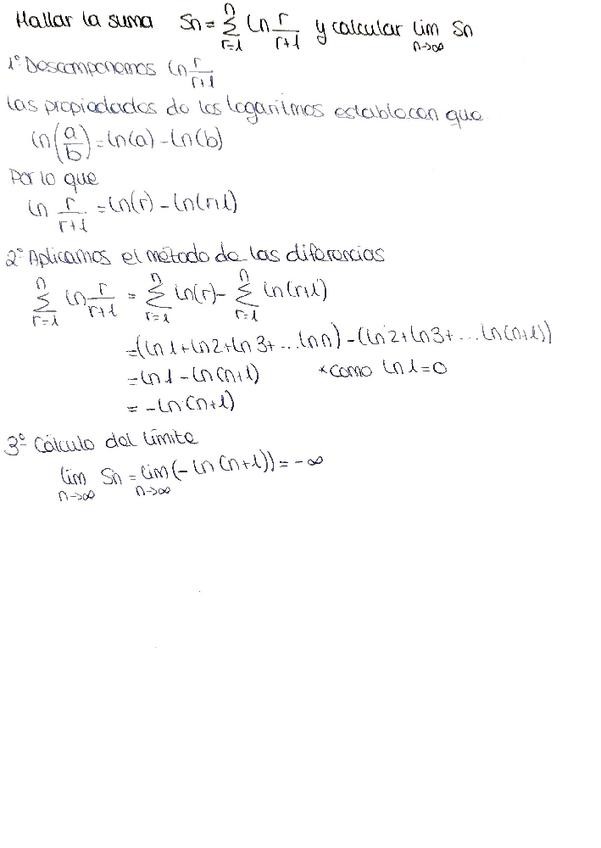 Hallar la suma Sn = n Σ r=1 ln r/(r+1) y calcular lim n→∞ Sn
1º Descomponemos ln r/(r+1)
Las propiedades de los logaritmos establecen que
ln(a/b) = ln(a) - ln(b)
Por lo que
ln r/(r+1) = ln(r) - ln(r+1)
2º Aplicamos el método de las diferencias
n Σ r=1 ln r/(r+1) = n Σ r=1 ln(r) - n Σ r=1 ln(r+1)
=(ln1+ln2+ln3+...lnn)-(ln2+ln3+...ln(n+1))
=ln1-ln(n+1) *como ln1=0
= -ln(n+1)
3º Cálculo del límite
lim n→∞ Sn = lim n→∞ (-ln(n+1)) = -∞